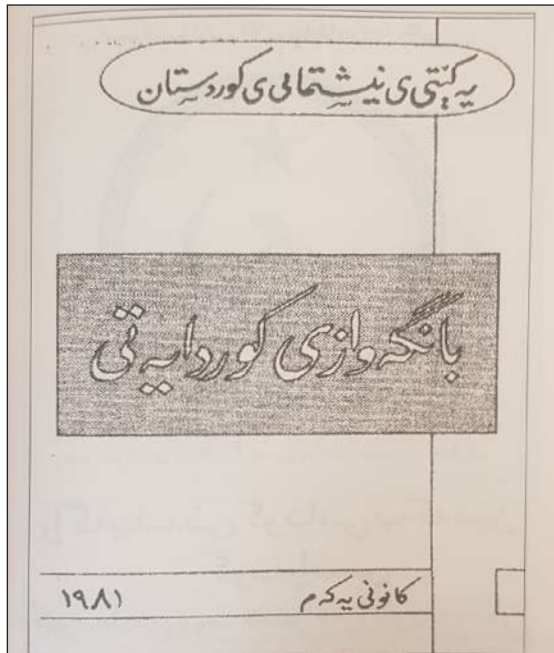 یه کێتی ی نیشتمانی ی کوردستان
بانگه وازی کوردایه تی
کانونی یه که م ١٩٨١